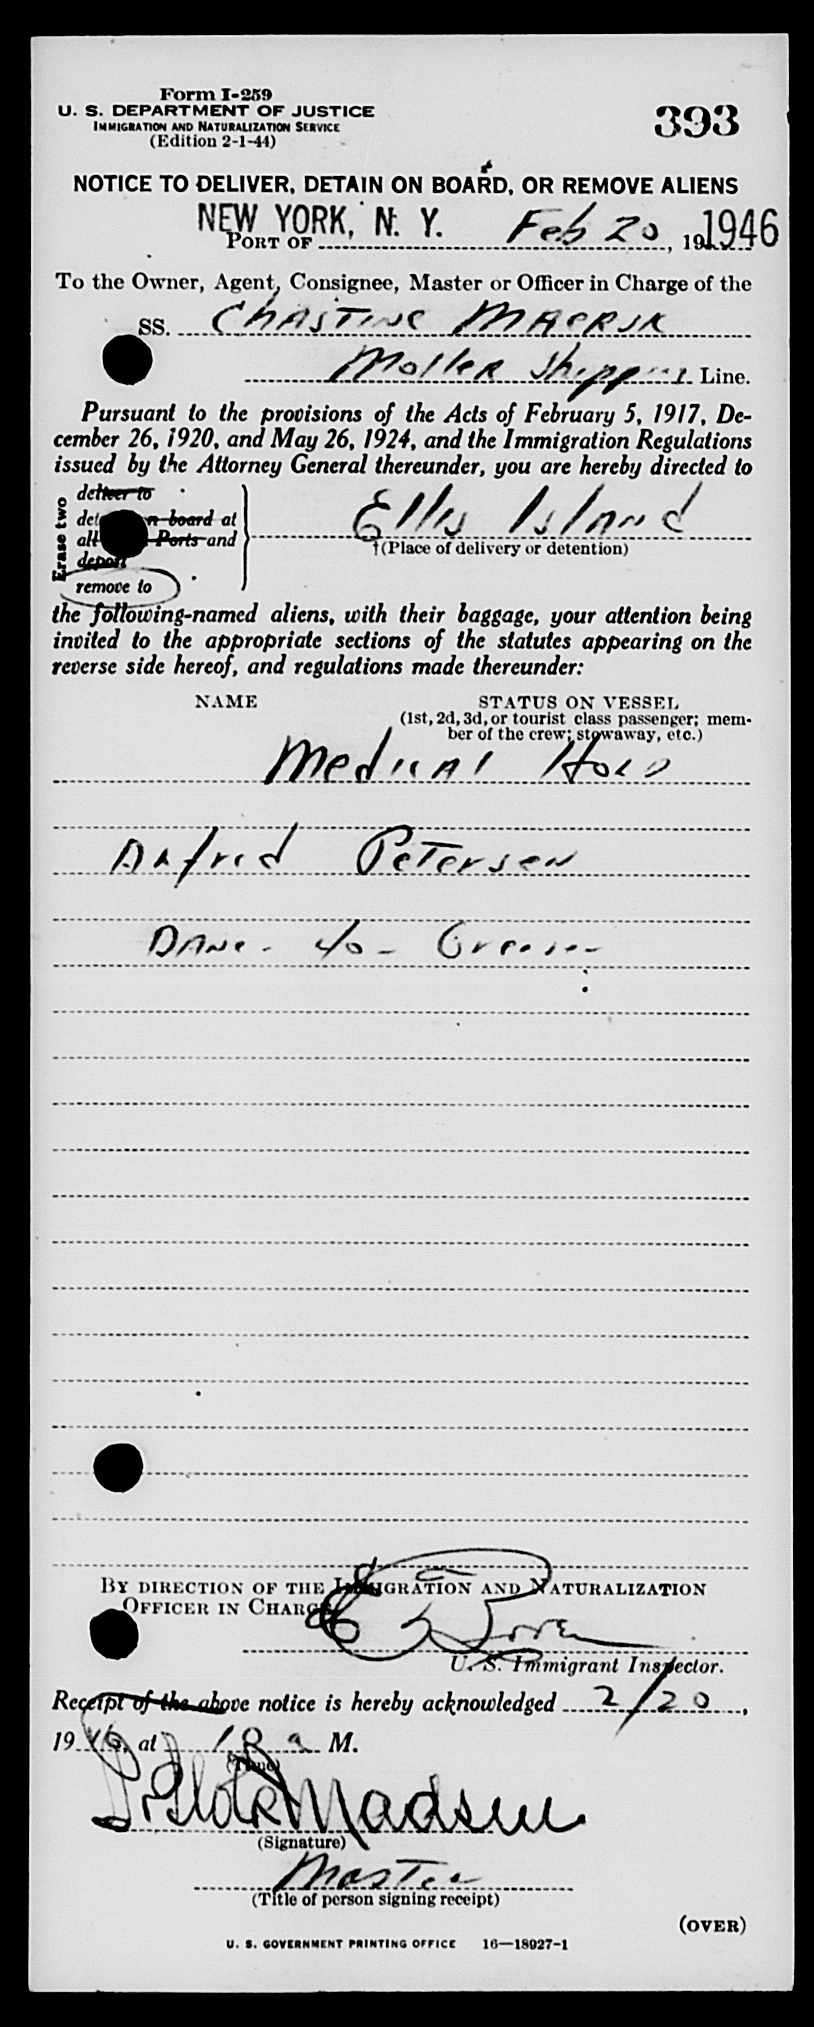 Form I-259
U. S. DEPARTMENT OF JUSTICE
IMMIGRATION AND NATURALIZATION SERVICE
(Edition 2-1-44)
393
NOTICE TO DELIVER, DETAIN ON BOARD, OR REMOVE ALIENS
NEW YORK, N. Y.
PORT OF Feb 20, 191946
To the Owner, Agent, Consignee, Master or Officer in Charge of the
SS. CHASTINE MAERSK
Moller Shipping Line.
Pursuant to the provisions of the Acts of February 5, 1917, De-
cember 26, 1920, and May 26, 1924, and the Immigration Regulations
issued by the Attorney General thereunder, you are hereby directed to
Erase two
deliver to
on board at
all Ports and
deport
remove to
Ellis Island
†(Place of delivery or detention)
the following-named aliens, with their baggage, your attention being
invited to the appropriate sections of the statutes appearing on the
reverse side hereof, and regulations made thereunder:
NAME
STATUS ON VESSEL
(1st, 2d, 3d, or tourist class passenger; mem-
ber of the crew; stowaway, etc.)
Medical Hold
Petersen
Dane - 40 - Greaser
BY DIRECTION OF THE IMMIGRATION AND NATURALIZATION
OFFICER IN CHARGE
U. S. Immigrant Inspector.
Receipt of the above notice is hereby acknowledged 2/20,
1946, at 10 a M.
(Time)
Madsen
(Signature)
Master
(Title of person signing receipt)
(OVER)
U. S. GOVERNMENT PRINTING OFFICE 16—18927-1